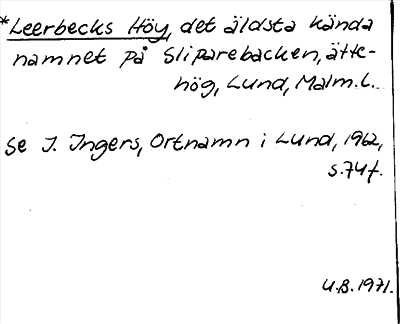 *Leerbecks Höy, det äldsta kända
namnet på Sliparebacken, ätte-
hög, Lund, Malm.l..
Se I. Ingers, Ortnamn i Lund, 1962,
s.74f.
U.B.1971.